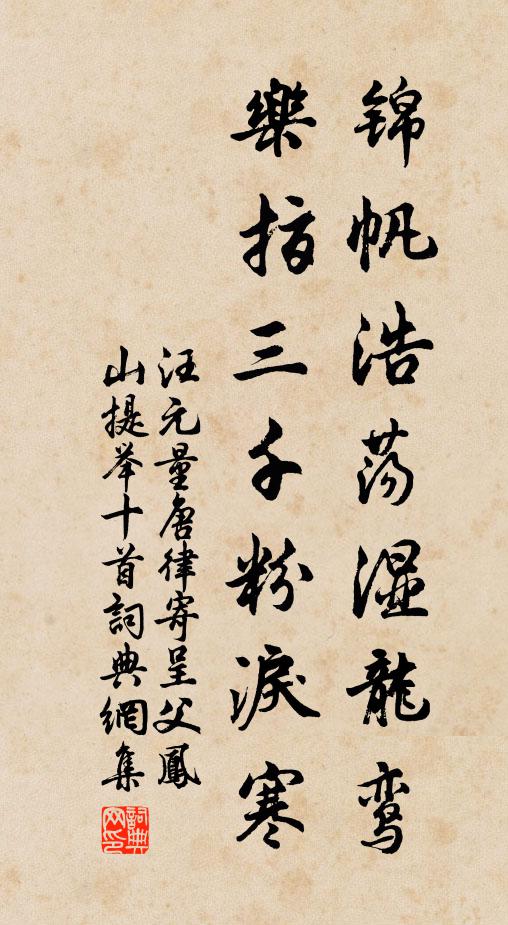 锦帆浩荡湿龍鸾
樂指三千粉淚寒
汪元量唐律寄呈父鳳
山提举十首詞典網集
詞典网印